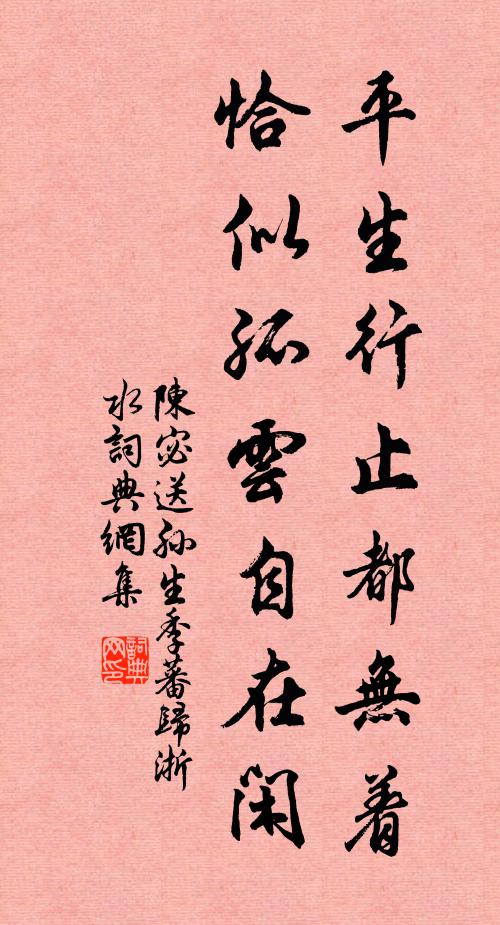 平生行止都無着
恰似孤雲自在閑
陳宓送孙生季蕃歸浙
水詞典網集
詞典
网印